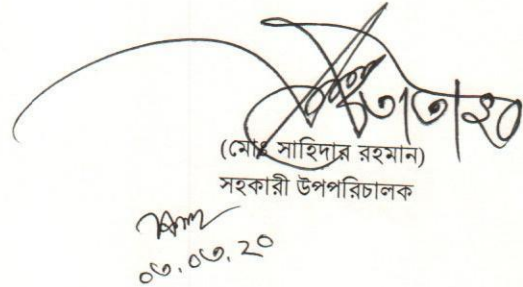 ৩।৩।২০
(মোঃ সাহিদার রহমান)
সহকারী উপপরিচালক
০৩.০৩.২০